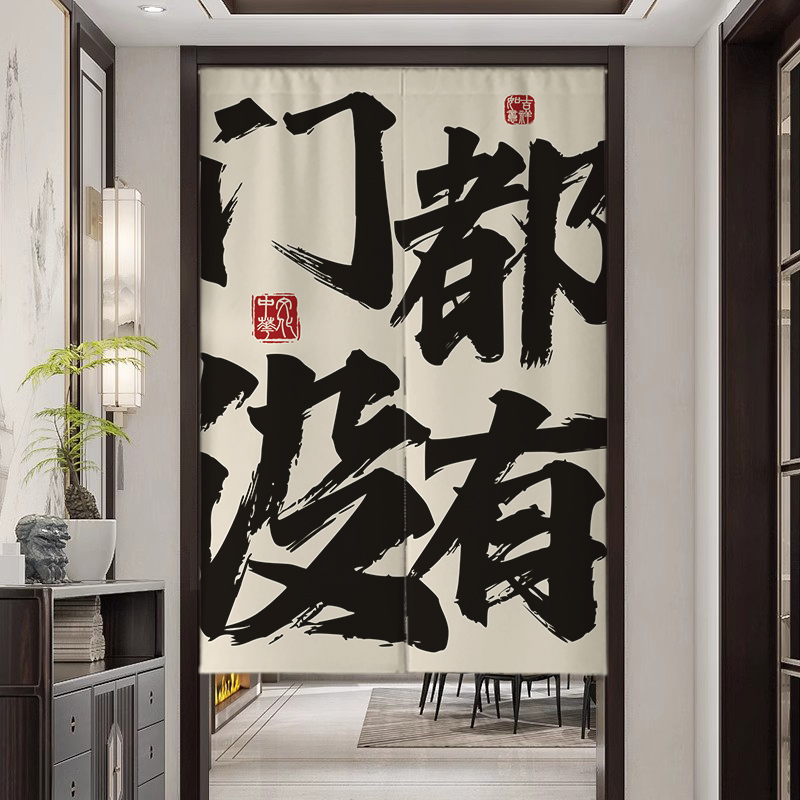 门都
没有
吉祥
如意
中华
文化